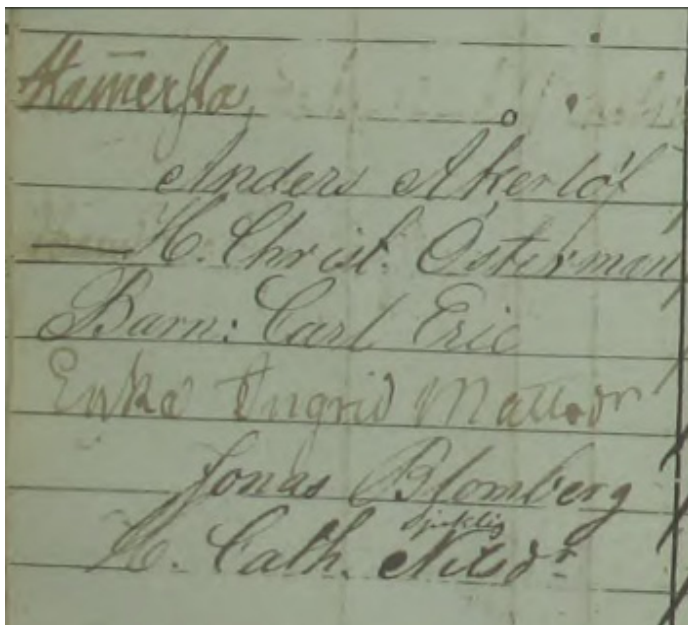 Ham̄ersta,
Anders Åkerlöf
H. Christ. Österman
Barn: Carl Eric
Enka Ingrid Mattsdr
Jonas Blomberg
sjuklig
H. Cath. Nilsdr